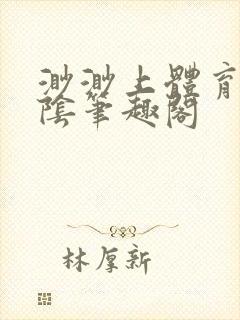 渺渺上體育
陰筆趣閣
林厚新